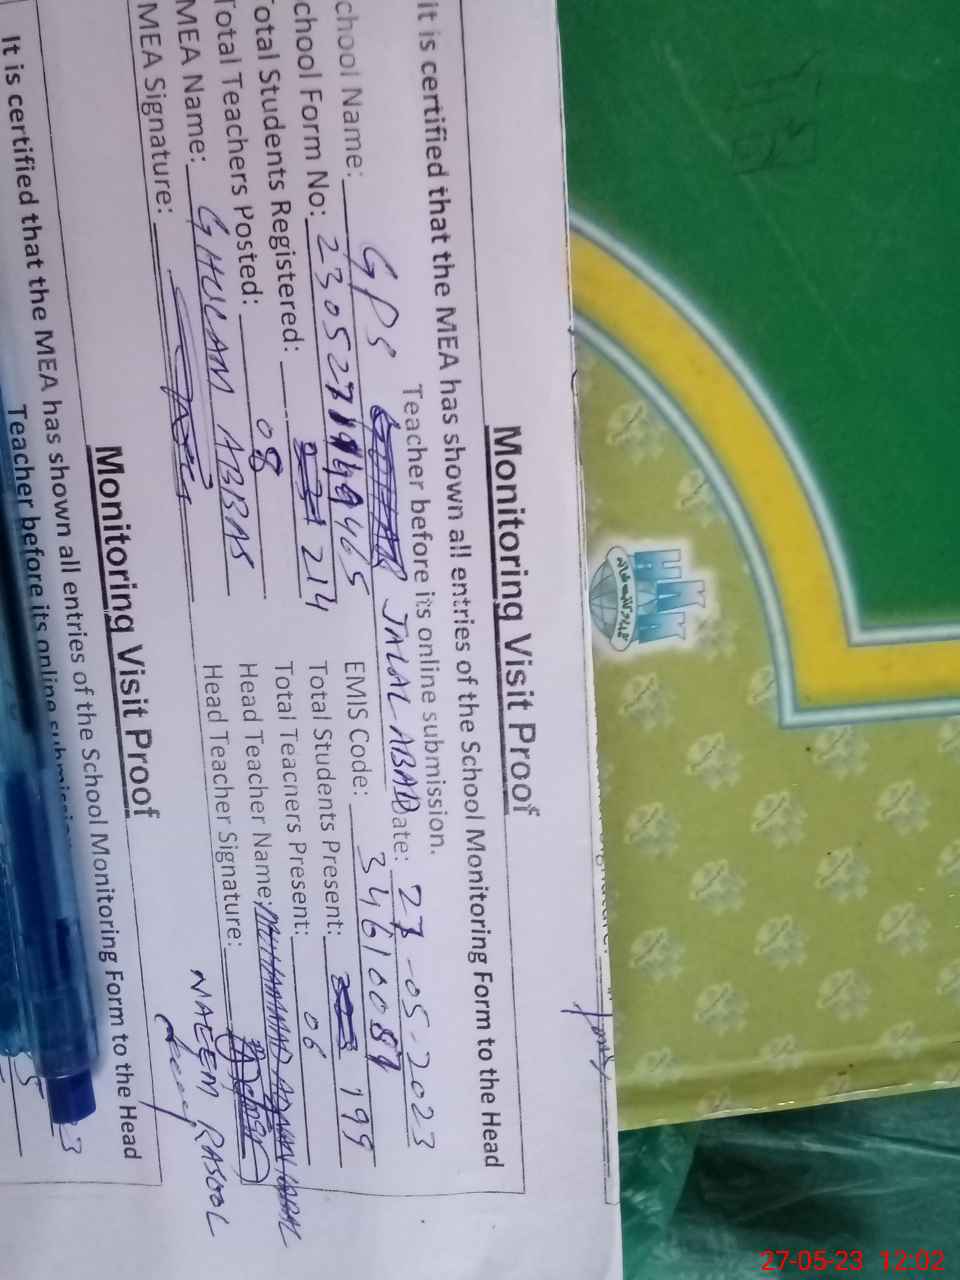 Monitoring Visit Proof
it is certified that the MEA has shown all entries of the School Monitoring Form to the Head
Teacher before its online submission.
chool Name: GPS JALAL ABAD ate: 27-05-2023
chool Form No: EMIS Code: 34610087
otal Students Registered: 214 Total Students Present: 199
Total Teachers Posted: 08 Total Teachers Present: 06
MEA Name: GHULAM ABBAS Head Teacher Name:
MEA Signature: Head Teacher Signature:
NAEEM RASOOL
Monitoring Visit Proof
It is certified that the MEA has shown all entries of the School Monitoring Form to the Head
Teacher before its online
27-05-23 12:02